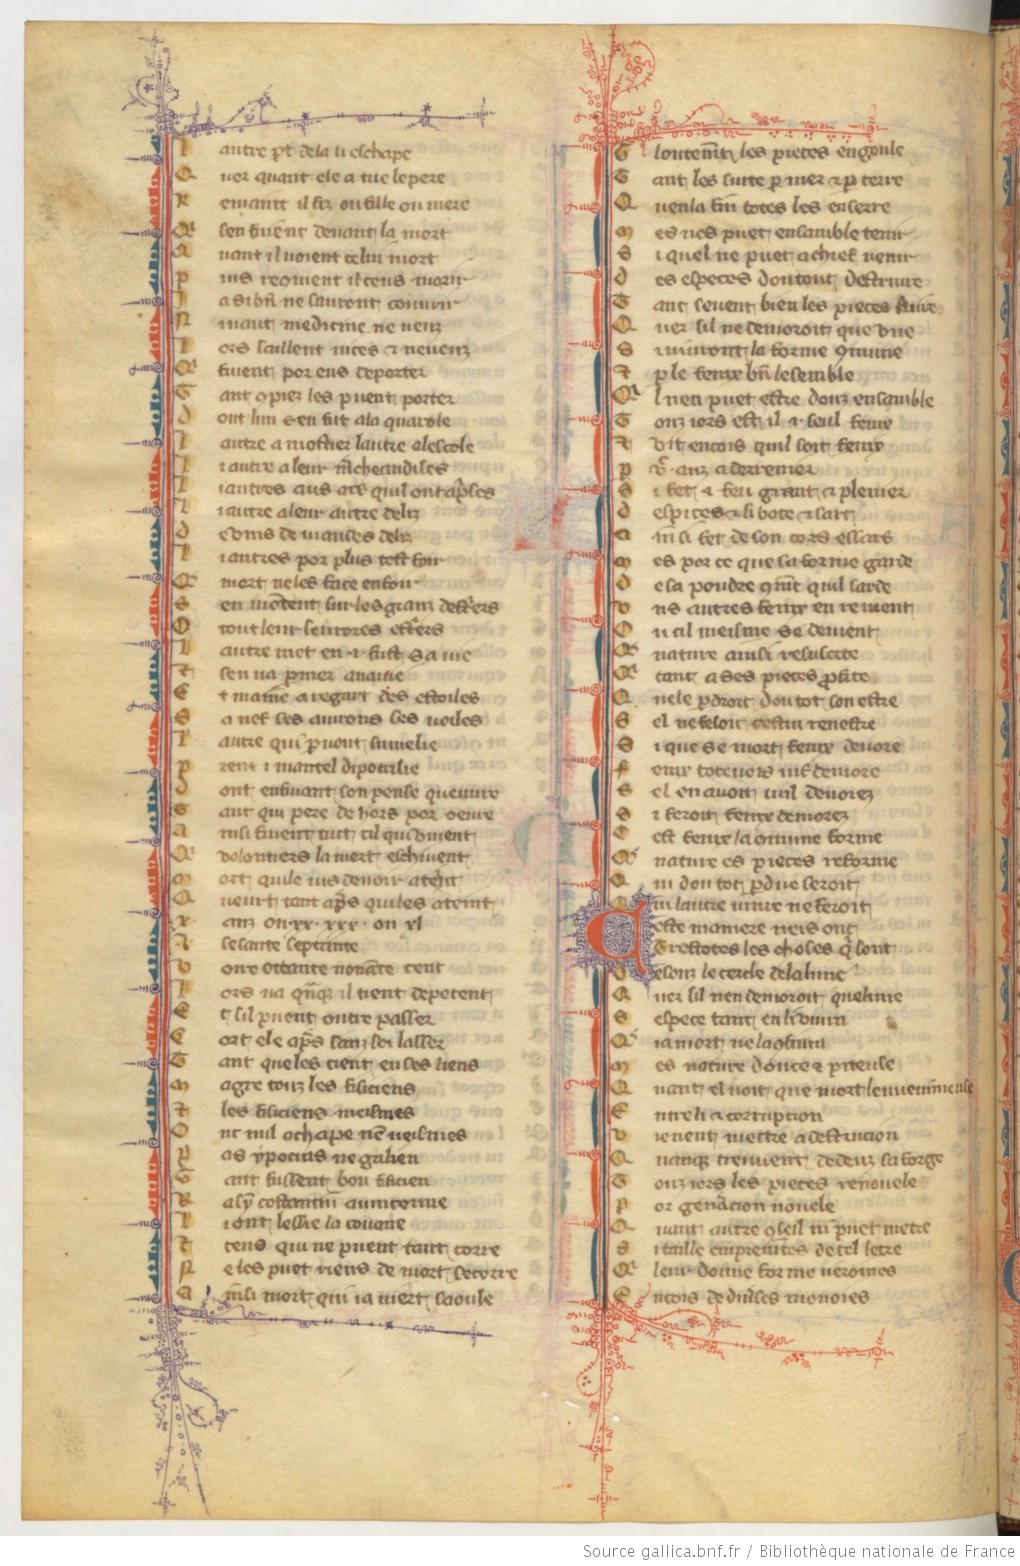 L autre part de la li eschape
Q uer quant ele a tue le pere
R emaint il fiz ou fille ou mere
Q sen fuient devant la mort
Q uant il voient celui mort
P uis reqvient il ces morir
J a si bn ne sauront courir
N i vaut medicine ne veuz
L ors saillent nices et neveuz
Q fuient por eus deporter
T ant 9 piez les puent porter
D ont lun sen fuit a la quarole
L autre a mostier lautre a lescole
L i autre a leur mcheandises
L i autres aus ars quil ont aprises
L i autre a leur autre deliz
D e vins de viandes deliz
L i autres por plus tost fuir
Q mort ne les face enfouir
S en montent sur les granz destriers
O tout leur seurores estriers
L autre met en i fust sa vie
T sen va par mer a navie
E t maine a regart des estoiles
S a nef ses avirons ses voiles
L autre qui par vout sumelie
P rent i mantel dipocrisie
D ont en fuiant son pense quevure
T ant qui pere de hors por oevre
A insi fuient tuit cil qui vivent
Q volontiers la mort eschivent
M ort qui le vis de noir a teint
Q ueurt tant aps qui les ateint
X anz ou xx xxx ou xl
L sesante septente
V oire ottante novante cent
L ors va quqe il tient depecent
E t sil puent outre passer
C ort ele aps sanz soi lasser
T ant que les tient en ses liens
M agre touz les fisiciens
T les fisiciens meismes
O nc nul eschape nen veismes
P as ypocras ne galien
T ant fussent bon fisicien
R asy costantin avincenne
L i ont lessie la couane
T ceus qui ne puent tant corre
N e les puet riens de mort secorre
A insi mort qui ia niert saoule
G loutement les pieces engoule
T ant les suite p mer et p terre
Q uen la fin totes les enserre
M es nes puet ensamble tenir
S i quel ne puet a chief venir
D es especes dou tout destruire
T ant sevent bien les pieces fuire
Q uer sil ne demoroit que une
S i vivroit la forme 9mune
T p le fenix bn le semble
Q l nen puet estre douz ensamble
T ouz iors est il i seul fenix
T vit encois quil soit fenix
P v anz a derrenier
S i fet i feu grant et plenier
D espices et li bote et sart
A insi fet de son cors essart
M es por ce que sa forme garde
D e sa poudre 9mt quil sarde
V ns autres fenix en revient
O u cil meisme se devient
Q nature ainsi resuscite
Q tant a ses pieces profite
Q uele pdroit dou tot son estre
S el ne feloit cestui renestre
S i que se mort fenix devore
F enix totevois vif demore
S el en avoit mil devorez
S i feroit fenix demorez
C est fenix la 9mune forme
Q nature es pieces reforme
Q ui dou tot pdue seroit
Q ui lautre vivre ne feroit
C este maniere neis ont
T restotes les choses q sont
D esouz le cercle de la lune
Q uer sil nen demoroit quelune
S espece tant en li vivra
Q ia mort ne la obivra
M es nature douce et piteuse
Q uant el voit que mort lenvenimeuse
E ntre li et corruption
V ienent metre a destrucion
Q uanque treuvent dedenz sa forge
T ouz iors les pieces renovele
P or genacion novele
Q uant autre 9seil ni puet metre
S i taille empreintes de tel letre
Q leur donne forme veroines
E ncois de divses monoies
Source gallica.bnf.fr / Bibliothèque nationale de France